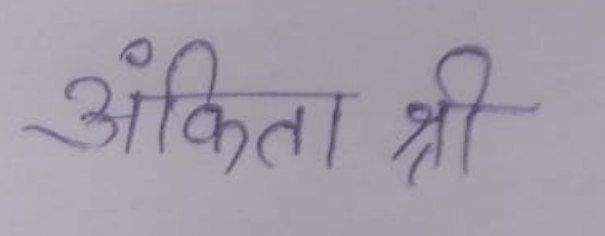 अंकिता श्री